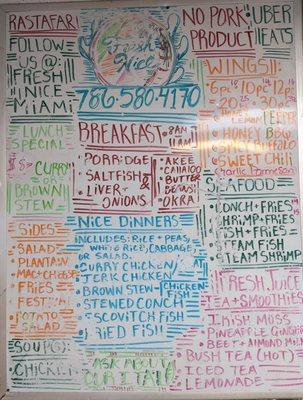 RASTAFARI
FOLLOW
US @:
FRESH
NICE
MIAMI
LUNCH
SPECIAL
CURRY
BROWN
STEW
SIDES
SALAD
PLANTAIN
MAC+CHEESE
FRIES
FESTIVAL
POTATO
SALAD
SOUP(G):
CHICKEN
Fresh
Nice
786-580-4170
BREAKFAST 8AM
11AM
PORRIDGE
SALTFISH
&
LIVER+
ONIONS
AKEE
CALLALOO
BUTTER
BEANS
OKRA
NICE DINNERS
INCLUDES: RICE + PEAS,
WHITE RICE, CABBAGE,
OR SALAD.
CURRY CHICKEN
JERK CHICKEN
BROWN STEW CHICKEN
FISH
STEWED CONCH
ESCOVITCH FISH
FRIED FISH
ASK ABOUT
OUR
NO PORK
PRODUCT
UBER
EATS
WINGS!!
6pc 10pc 12pc
20 30
LEMON PEPPER
HONEY BBQ
SPICY BUFFALO
SWEET CHILI
Garlic Parmesan
SEAFOOD
CONCH + FRIES
SHRIMP + FRIES
FISH + FRIES
STEAM FISH
STEAM SHRIMP
FRESH JUICE
TEA + SMOOTHIES
IRISH MOSS
PINEAPPLE GINGER
BEET + ALMOND MILK
BUSH TEA (HOT)
ICED TEA
LEMONADE